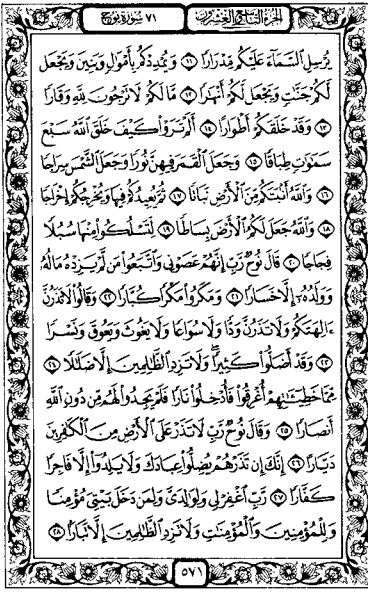 الجزء التاسع والعشرون ٧١ سورة نوح
يُرْسِلِ السَّمَاءَ عَلَيْكُم مِّدْرَارًا ١١ وَيُمْدِدْكُم بِأَمْوَالٍ وَبَنِينَ وَيَجْعَل
لَّكُمْ جَنَّاتٍ وَيَجْعَل لَّكُمْ أَنْهَارًا ١٢ مَّا لَكُمْ لَا تَرْجُونَ لِلَّهِ وَقَارًا
١٣ وَقَدْ خَلَقَكُمْ أَطْوَارًا ١٤ أَلَمْ تَرَوْا كَيْفَ خَلَقَ اللَّهُ سَبْعَ
سَمَٰوَٰتٍ طِبَاقًا ١٥ وَجَعَلَ الْقَمَرَ فِيهِنَّ نُورًا وَجَعَلَ الشَّمْسَ سِرَاجًا
١٦ وَاللَّهُ أَنبَتَكُم مِّنَ الْأَرْضِ نَبَاتًا ١٧ ثُمَّ يُعِيدُكُمْ فِيهَا وَيُخْرِجُكُمْ إِخْرَاجًا
١٨ وَاللَّهُ جَعَلَ لَكُمُ الْأَرْضَ بِسَاطًا ١٩ لِّتَسْلُكُوا مِنْهَا سُبُلًا
فِجَاجًا ٢٠ قَالَ نُوحٌ رَّبِّ إِنَّهُمْ عَصَوْنِي وَاتَّبَعُوا مَن لَّمْ يَزِدْهُ مَالُهُ
وَوَلَدُهُ إِلَّا خَسَارًا ٢١ وَمَكَرُوا مَكْرًا كُبَّارًا ٢٢ وَقَالُوا لَا تَذَرُنَّ
ءَالِهَتَكُمْ وَلَا تَذَرُنَّ وَدًّا وَلَا سُوَاعًا وَلَا يَغُوثَ وَيَعُوقَ وَنَسْرًا
٢٣ وَقَدْ أَضَلُّوا كَثِيرًا وَلَا تَزِدِ الظَّالِمِينَ إِلَّا ضَلَالًا ٢٤
مِّمَّا خَطِيئَاتِهِمْ أُغْرِقُوا فَأُدْخِلُوا نَارًا فَلَمْ يَجِدُوا لَهُم مِّن دُونِ اللَّهِ
أَنصَارًا ٢٥ وَقَالَ نُوحٌ رَّبِّ لَا تَذَرْ عَلَى الْأَرْضِ مِنَ الْكَافِرِينَ
دَيَّارًا ٢٦ إِنَّكَ إِن تَذَرْهُمْ يُضِلُّوا عِبَادَكَ وَلَا يَلِدُوا إِلَّا فَاجِرًا
كَفَّارًا ٢٧ رَّبِّ اغْفِرْ لِي وَلِوَالِدَيَّ وَلِمَن دَخَلَ بَيْتِيَ مُؤْمِنًا
وَلِلْمُؤْمِنِينَ وَالْمُؤْمِنَاتِ وَلَا تَزِدِ الظَّالِمِينَ إِلَّا تَبَارًا ٢٨
٥٧١